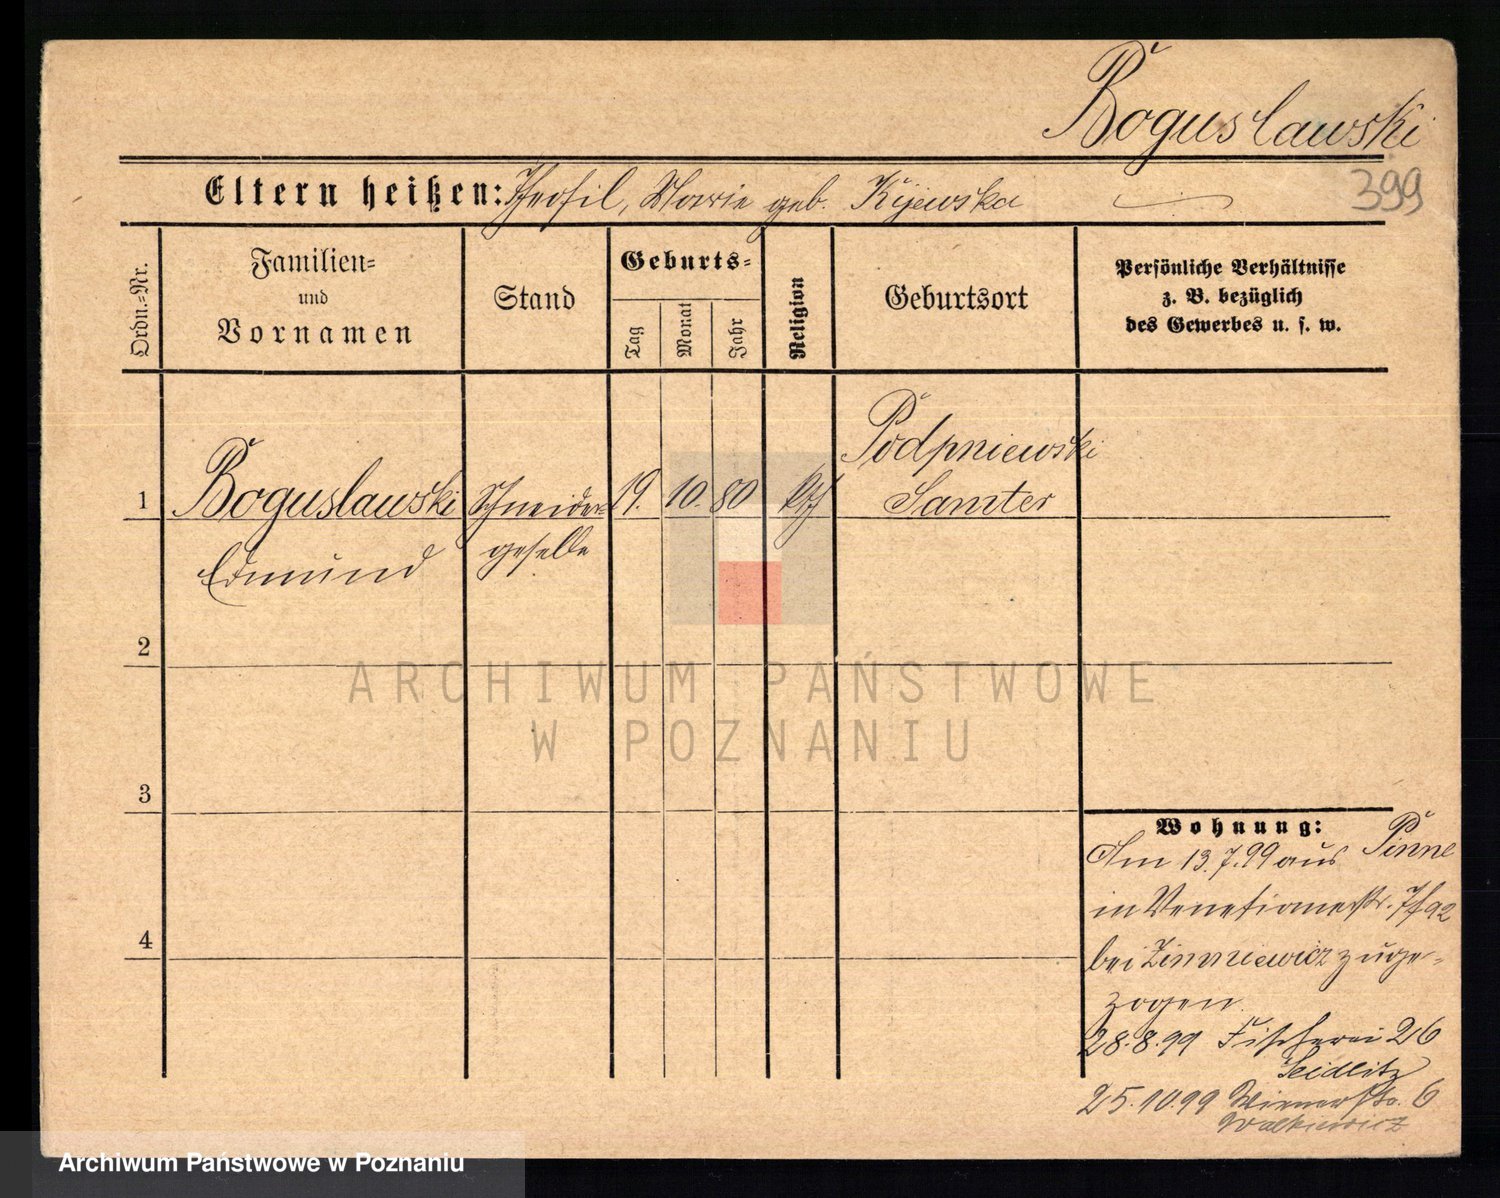 Boguslawski
399
Eltern heißen: Theofil, Marie geb. Kijewska
Ordn.-Nr.
Familien-
und
Vornamen
Stand
Geburts-
Tag
Monat
Jahr
Religion
Geburtsort
Persönliche Verhältnisse
z. B. bezüglich
des Gewerbes u. s. w.
1
Boguslawski
Edmund
Schneider-
geselle
19. 10. 80
kth
Podpniewski
Samter
2
3
4
Wohnung:
Am 13.7.99 aus Pinne
in Venetianerstr. 7/92
bei zuge-
zogen.
28.8.99 Fischerei 26
Seidlitz
25.10.99 Wienerstr. 6
Walkiewicz
ARCHIWUM PAŃSTWOWE
W POZNANIU
Archiwum Państwowe w Poznaniu